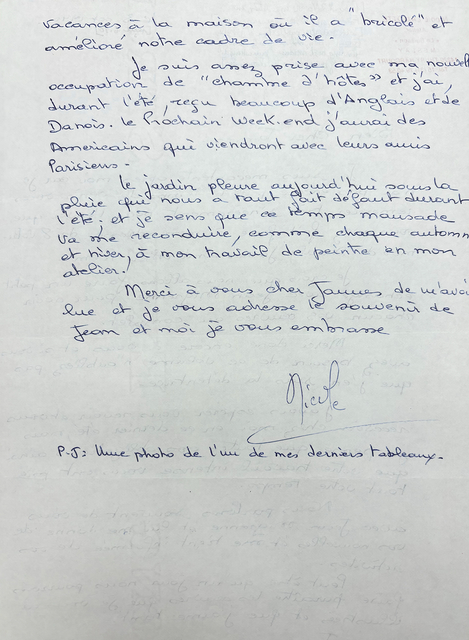 vacances à la maison où il a "bricolé" et
amélioré notre cadre de vie.
Je suis assez prise avec ma nouvelle
occupation de "chamme d'hôtes" et j'ai,
durant l'été, reçu beaucoup d'Anglais et de
Danois. Le Prochain Week.end j'aurai des
Americains qui viendront avec leurs amis
Parisiens.
Le jardin pleure aujourd'hui sous la
pluie qui nous a tant fait défaut durant
l'été; et je sens que ce temps maussade
va me reconduire, comme chaque automn
et hiver, à mon travail de peintre en mon
atelier.
Merci à vous cher de m'avoi
lue et je vous adresse le souvenir de
Jean et moi je vous embrasse
Nicole
P.J: Une photo de l'un de mes derniers tableaux.